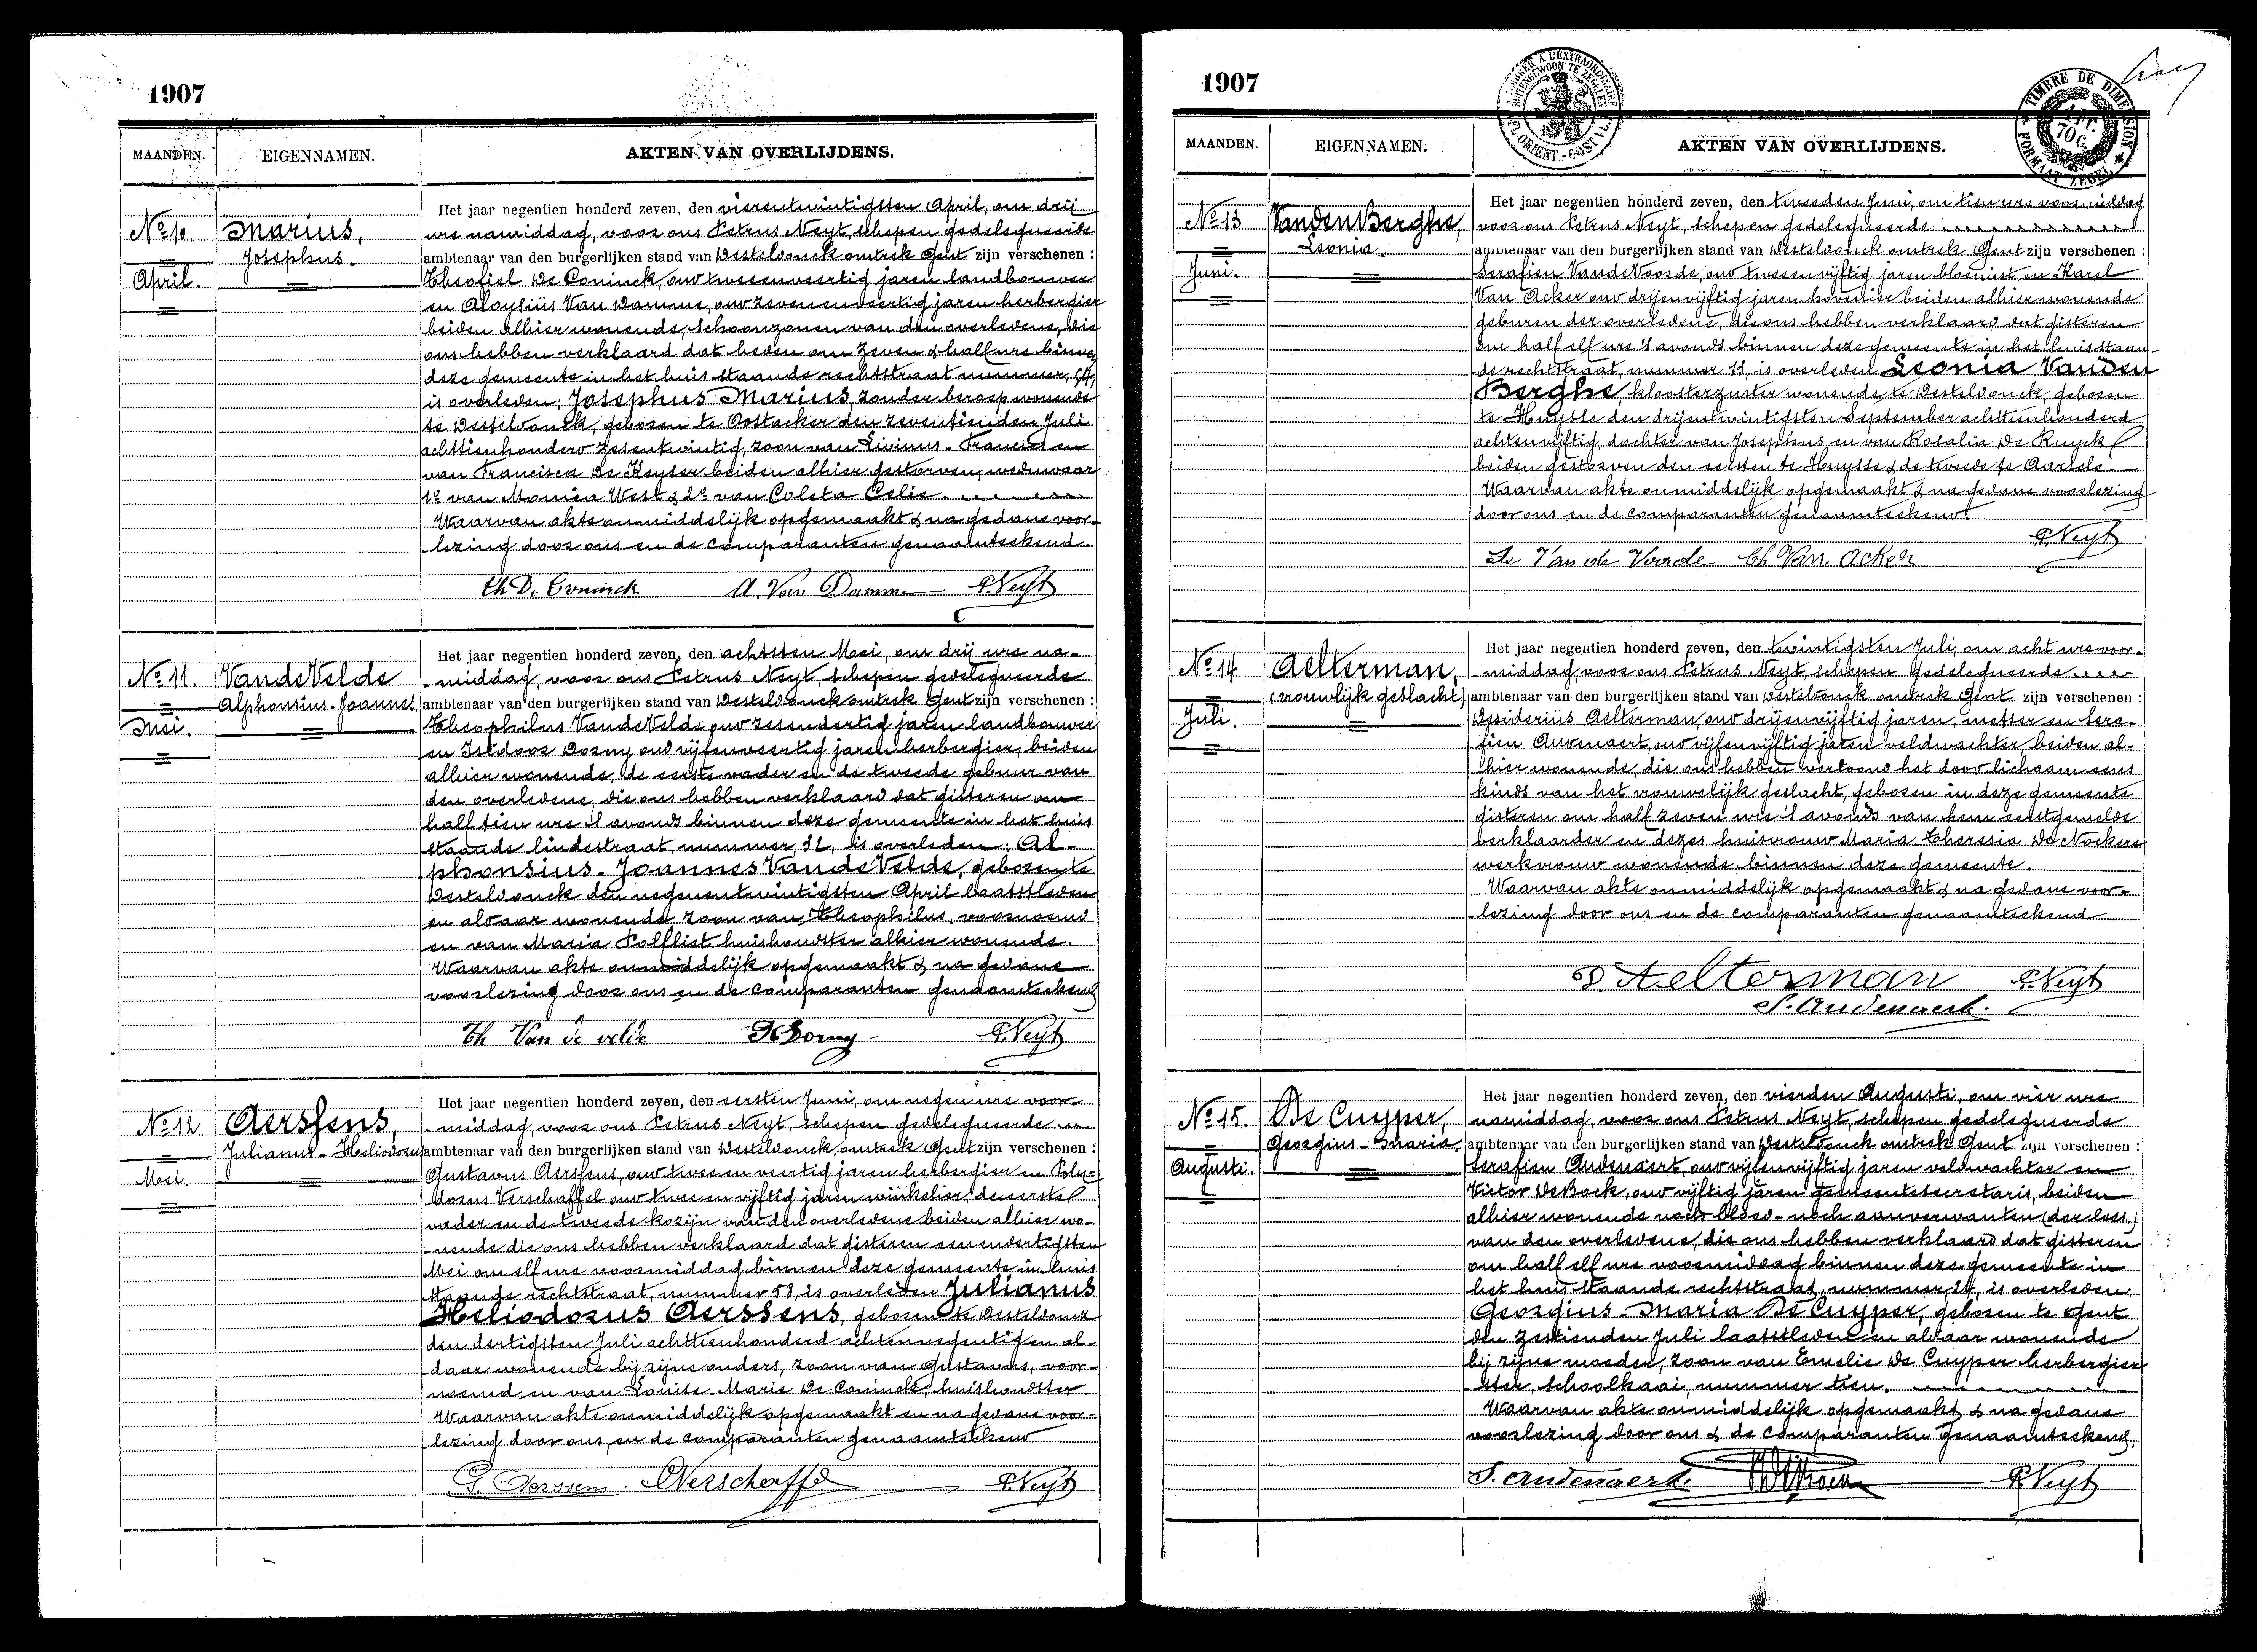 1907
MAANDEN.
EIGENNAMEN.
AKTEN VAN OVERLIJDENS.
No 10.
April.
Marius,
Josephus.
Het jaar negentien honderd zeven, den vierentwintigsten April, om drij
ure namiddag, voor ons Petrus Neyt, schepen gedelegueerde
ambtenaar van den burgerlijken stand van Desteldonck omtrek Gent zijn verschenen :
Theofiel De Coninck, oud tweeenveertig jaren landbouwer
en Aloysius Van Damme, oud zevenenveertig jaren herbergier
beiden alhier wonende, schoonzonen van den overledene, die
ons hebben verklaard dat heden om zeven & half ure binnen
deze gemeente in het huis staande rechtstraat nummer, 54,
is overleden: Josephus Marius, zonder beroep wonende
te Desteldonck, geboren te Oostacker den zeventienden Juli
achttienhonderd zesentwintig, zoon van Livinus - Francies en
van Francisca De Keyser beiden alhier gestorven, weduwaar
1e van Monica West & 2e van Coleta Celie.
Waarvan akte onmiddelijk opgemaakt & na gedane voor-
lezing door ons en de comparanten genaamteekend.
Th De Coninck A. Van Damme P. Neyt
No 11.
Mei.
VandeVelde
Alphonsius-Joannes
Het jaar negentien honderd zeven, den achtsten Mei, om drij ure na-
middag, voor ons Petrus Neyt, schepen gedelegueerde
ambtenaar van den burgerlijken stand van Desteldonck omtrek Gent zijn verschenen :
Theophilus VandeVelde oud zesendertig jaren landbouwer
en Isidoor Dorny oud vijfenveertig jaren herbergier, beiden
alhier wonende, de eerste vader en de tweede gebuur van
den overledene, die ons hebben verklaard dat gisteren om
half tien ure 's avonds binnen deze gemeente in het huis
staande lindestraat, nummer, 32, is overleden: Al-
phonsius-Joannes VandeVelde, geboren te
Desteldonck den negenentwintigsten April laatstleden
en aldaar wonende zoon van Theophilus, voornoemd
en van Maria Polfliet huishoudster alhier wonende.
Waarvan akte onmiddelijk opgemaakt & na gedane
voorlezing door ons en de comparanten genaamteekend
Th Van de velde P. Neyt
No 12
Mei.
Aerssens,
Julianus - Heliodorus
Het jaar negentien honderd zeven, den eersten Juni, om negen ure voor-
middag, voor ons Petrus Neyt, schepen gedelegueerde
ambtenaar van den burgerlijken stand van Desteldonck, omtrek Gent zijn verschenen :
Gustavus Aerssens, oud twee en veertig jaren herbergier en Poly-
dorus Verschaffel oud twee en vijftig jaren winkelier, de eerste
vader en de tweede kozijn van den overledene beiden alhier wo-
nende die ons hebben verklaard dat gisteren eenendertigsten
Mei om elf ure voormiddag binnen deze gemeente in huis
staande rechtstraat, nummer 58, is overleden Julianus
Heliodorus Aerssens, geboren te Desteldonck
den dertigsten Juli achttienhonderd achtennegentig en al-
daar wonende bij zijne ouders, zoon van Gustavus, voor-
noemd en van Louise Marie De Coninck, huishoudster
Waarvan akte onmiddelijk opgemaakt en na gedane voor-
lezing door ons en de comparanten genaamteekend
G. Aerssens. Verschaffel P. Neyt
1907
TIMBRE DE DIMENSION
FORMAAT ZEGEL
MAANDEN.
EIGENNAMEN.
AKTEN VAN OVERLIJDENS.
No 13
Juni.
VandenBerghe,
Leonia.
Het jaar negentien honderd zeven, den tweeden Juni, om tien ure voormiddag
voor ons Petrus Neyt, schepen gedelegueerde
ambtenaar van den burgerlijken stand van Desteldonck omtrek Gent zijn verschenen :
Serafien VandeVoorde, oud tweeenvijftig jaren bloemist en Karel
Van Acker oud drijenvijftig jaren hovenier beiden alhier wonende
geburen der overledene, die ons hebben verklaard dat gisteren
om half elf ure 's avonds binnen deze gemeente in het huis staan-
de rechtstraat, nummer 13, is overleden Leonia Vanden
Berghe, kloosterzuster wonende te Desteldonck, geboren
te Huysse den drijentwintigsten September achttienhonderd
achtenvijftig, dochter van Josephus, en van Rosalia De Ruyck
beiden gestorven den eersten te Huysse & de tweede te Aarsele.
Waarvan akte onmiddelijk opgemaakt & na gedane voorlezing
door ons en de comparanten genaamteekend.
P. Neyt
Se. Van de Voorde Ch Van Acker
No 14
Juli.
Aelterman,
(vrouwlijk geslacht)
Het jaar negentien honderd zeven, den twintigsten Juli om acht ure voor-
middag, voor ons Petrus Neyt, schepen gedelegueerde
ambtenaar van den burgerlijken stand van Desteldonck omtrek Gent zijn verschenen :
Desiderius Aelterman, oud drijenvijftig jaren, metser en Sera-
fien Audenaert, oud vijfenvijftig jaren veldwachter, beiden al-
hier wonende, die ons hebben vertoond het dood lichaam eens
kinds van het vrouwelijk geslacht, geboren in deze gemeente
gisteren om half zeven ure 's avonds van hem eerstgemelde
verklaarder en dezes huisvrouw Maria Theresia De Nockere
werkvrouw wonende binnen deze gemeente.
Waarvan akte onmiddelijk opgemaakt & na gedane voor-
lezing door ons en de comparanten genaamteekend
D. Aelterman P. Neyt
S. Audenaert.
No 15.
Augusti.
De Cuyper,
Georgius - Maria.
Het jaar negentien honderd zeven, den vierden Augusti, om vier ure
namiddag, voor ons Petrus Neyt, schepen gedelegueerde
ambtenaar van den burgerlijken stand van Desteldonck omtrek Gent zijn verschenen :
Serafien Audenaert, oud vijfenvijftig jaren veldwachter en
Victor DeBock, oud vijftig jaren gemeentesecretaris, beiden
alhier wonende noch bloed- noch aanverwanten
van den overledene, die ons hebben verklaard dat gisteren
om half elf ure voormiddag binnen deze gemeente in
het huis staande rechtstraat, nummer, 24, is overleden:
Georgius - Maria De Cuyper, geboren te Gent
den zestienden Juli laatstleden en aldaar wonende
bij zijne moeder, zoon van Emelie De Cuyper herbergier
ster, schoolkaai, nummer tien.
Waarvan akte onmiddelijk opgemaakt & na gedane
voorlezing door ons & de comparanten genaamteekend.
S. Audenaert. P. Neyt